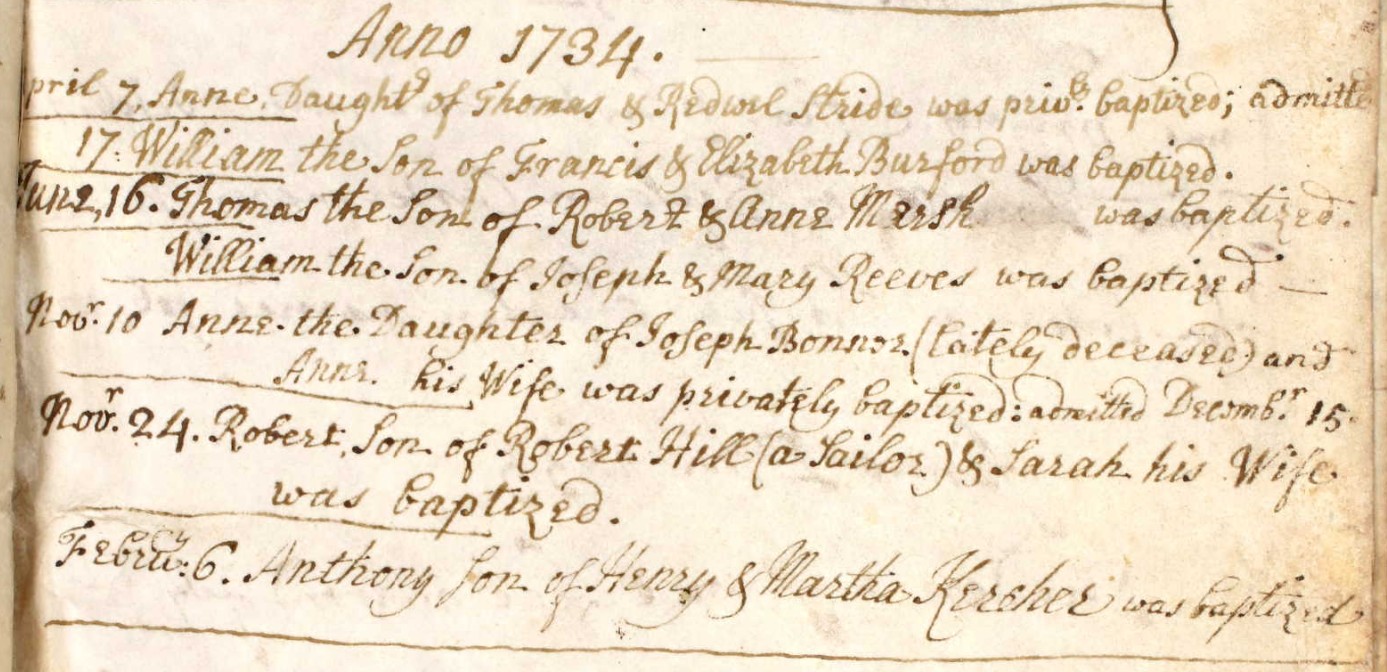 Anno 1734.
pril 7. Anne, Daught^r of Thomas & Redwel Stride was priv^ly. baptized; admitte
17. William the Son of Francis & Elizabeth Burford was baptized.
June, 16. Thomas the Son of Robert & Anne Mersh was baptized.
William the Son of Joseph & Mary Reeves was baptized —
Nov^r. 10 Anne the Daughter of Joseph Bonnor (lately deceased) and
Anne his Wife was privately baptized: admitted Decemb^r. 15.
Nov^r. 24. Robert, Son of Robert Hill (a Sailor) & Sarah his Wife
was baptized.
Febru^ry: 6. Anthony Son of Henry & Martha Kercher was baptized